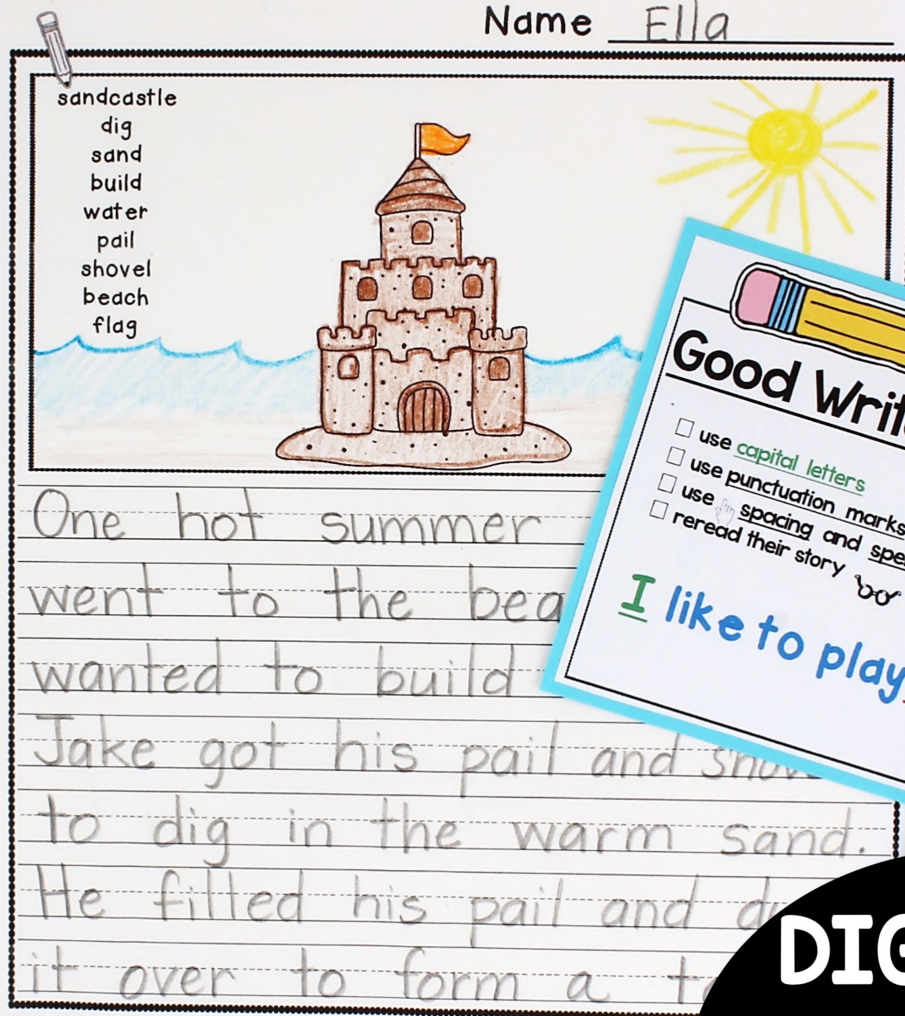 Name Ella
sandcastle
dig
sand
build
water
pail
shovel
beach
flag
Good
use capital letters
use punctuation marks
use spacing and
reread their story
I like to play
One hot summer
went to the
wanted to build
Jake got his pail and
to dig in the warm sand.
He filled his pail and
it over to form a